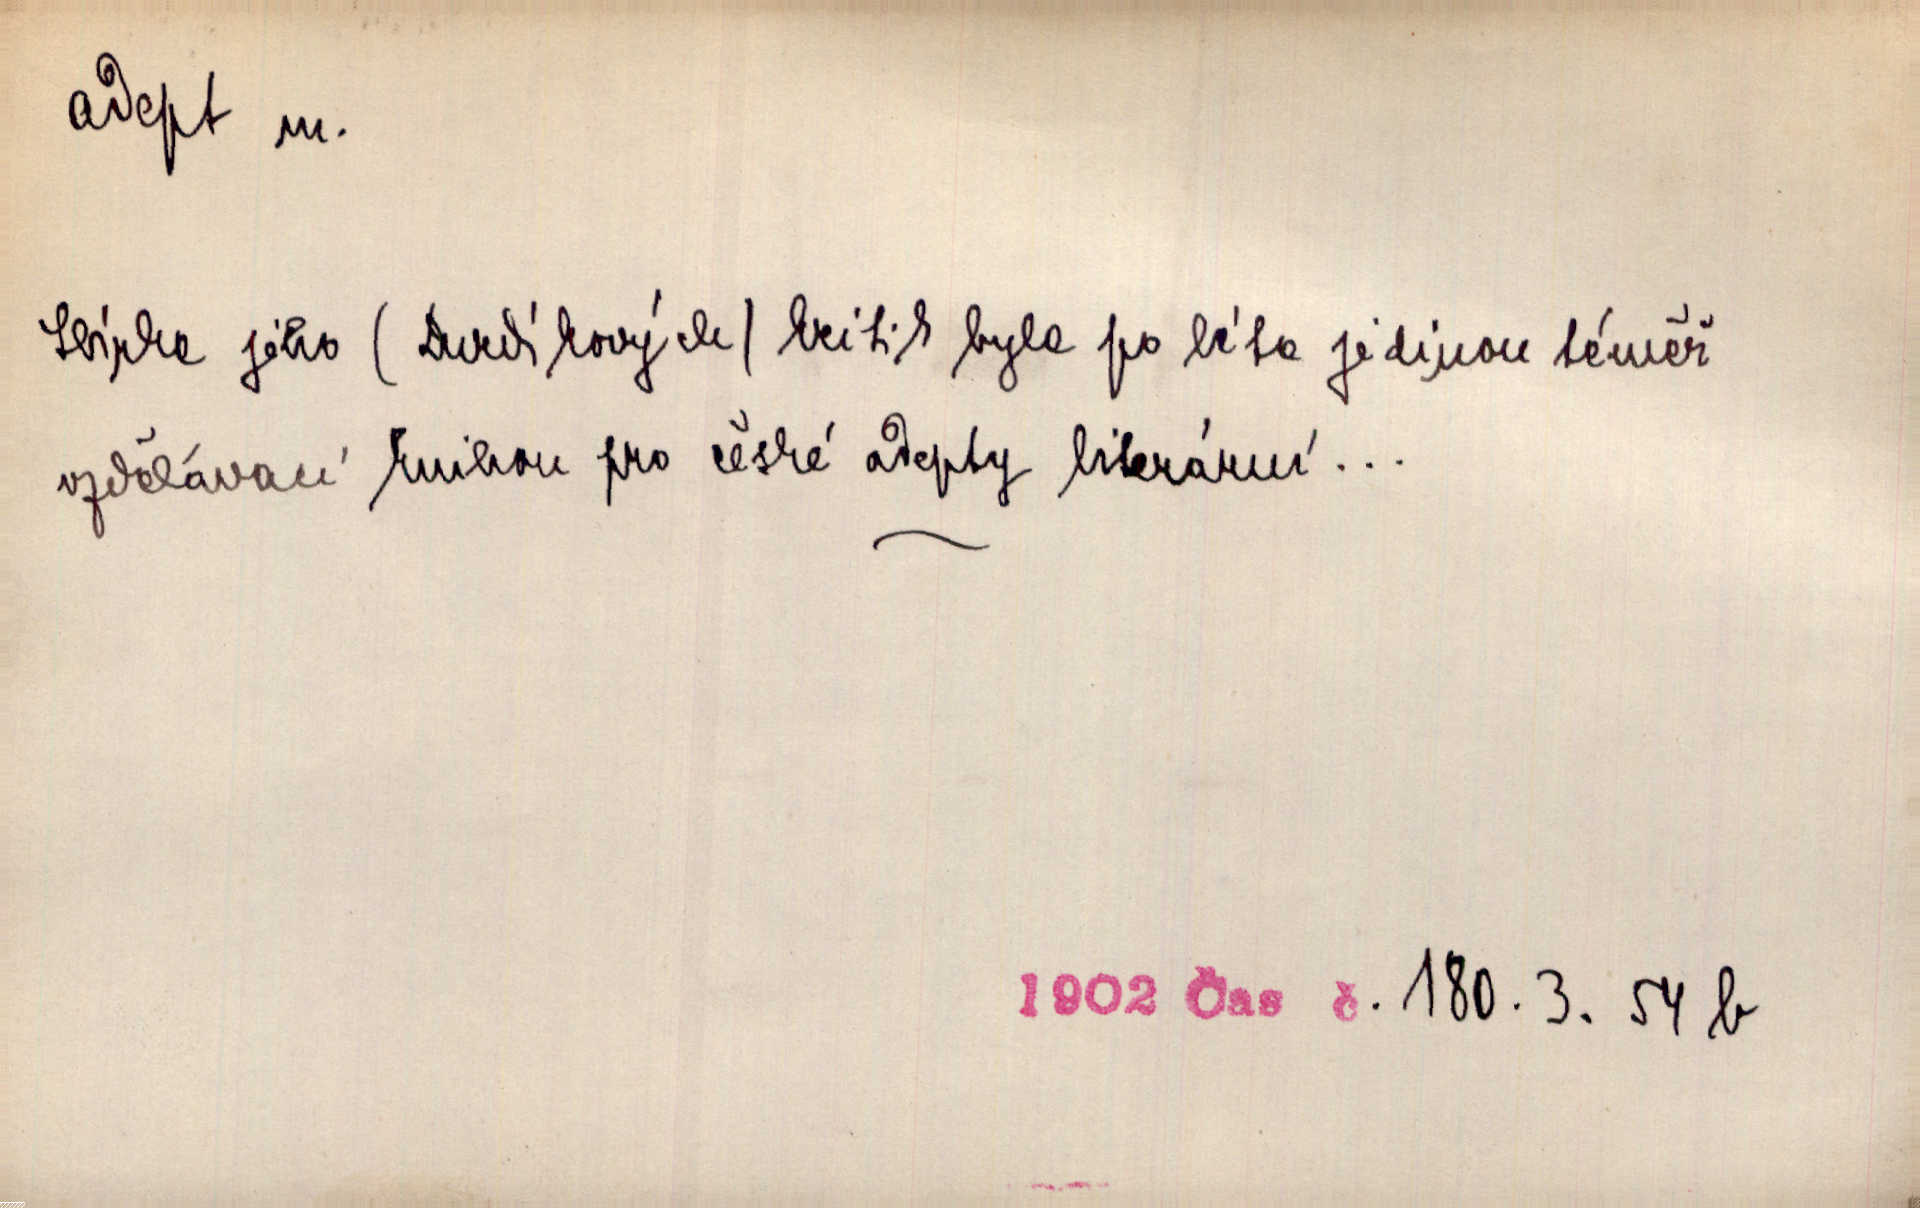 adept m.
Sbírka jeho (Durdíkových) kritik byla po léta jedinou téměř
vzdělávací knihou pro české adepty literární...
1902 Čas č. 180. 3. 54 b